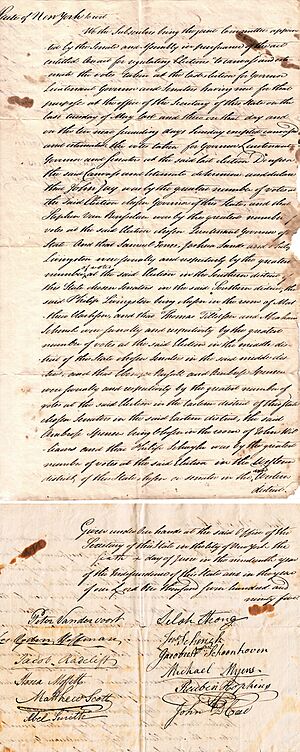 State of New York to wit
We the Subscribers being the joint Committee appoin-
ted by the Senate and Assembly in pursuance of the act
entitled An act for regulating Elections to canvass and esti-
mate the votes taken at the last election for Governor
Lieutenant Governor and Senators having met for that
purpose at the office of the Secretary of this State on the
last tuesday of May last and then on this day and
on the ten next preceding days Sunday excepted canvassed
and estimated the votes taken for Governor Lieutenant
Governor and Senators at the said last election Do upon
the said Canvass and Estimate determine and declare
that John Jay was by the greatest number of votes at
the said Election chosen Governor of the State and that
Stephen Van Renselaer was by the greatest number of
votes at the said election chosen Lieutenant Governor of the
State. And that Samuel Jones, Joshua Sands and
Livingston were severally and respectively by the greatest
number of votes at the said Election in the Southern district of
this State chosen Senators in the said Southern district, the
said Philip Livingston being chosen in the room of
and that Thomas Tillotson and
were severally and respectively by the greatest
number of votes at the said Election in the middle dis-
trict of this State chosen Senators in the said middle dis-
trict, and that Ebenezer Russell and Ambrose Spencer
were severally and respectively by the greatest number of
votes at the said Election in the Eastern district of this State
chosen Senators in the said Eastern district, the said
Ambrose Spencer being chosen in the room of John
and that Philip Schuyler was by the greatest
number of votes at the said Election in the Western
district of this State chosen a senator in the said Western
district
Given under our hands at the said Office of the
Secretary of this State in the City of New York the
day of June in the nineteenth year
of the Independence of this State and in the year
of our Lord One thousand seven hundred and
ninety five.
Peter Vandervoort
Selah Strong
Hoffman
Jacob Radclift
Jacobus V Schoonhoven
Michael Myers
Matthew Scott
Reuben Hopkins
Abel Smith
John D